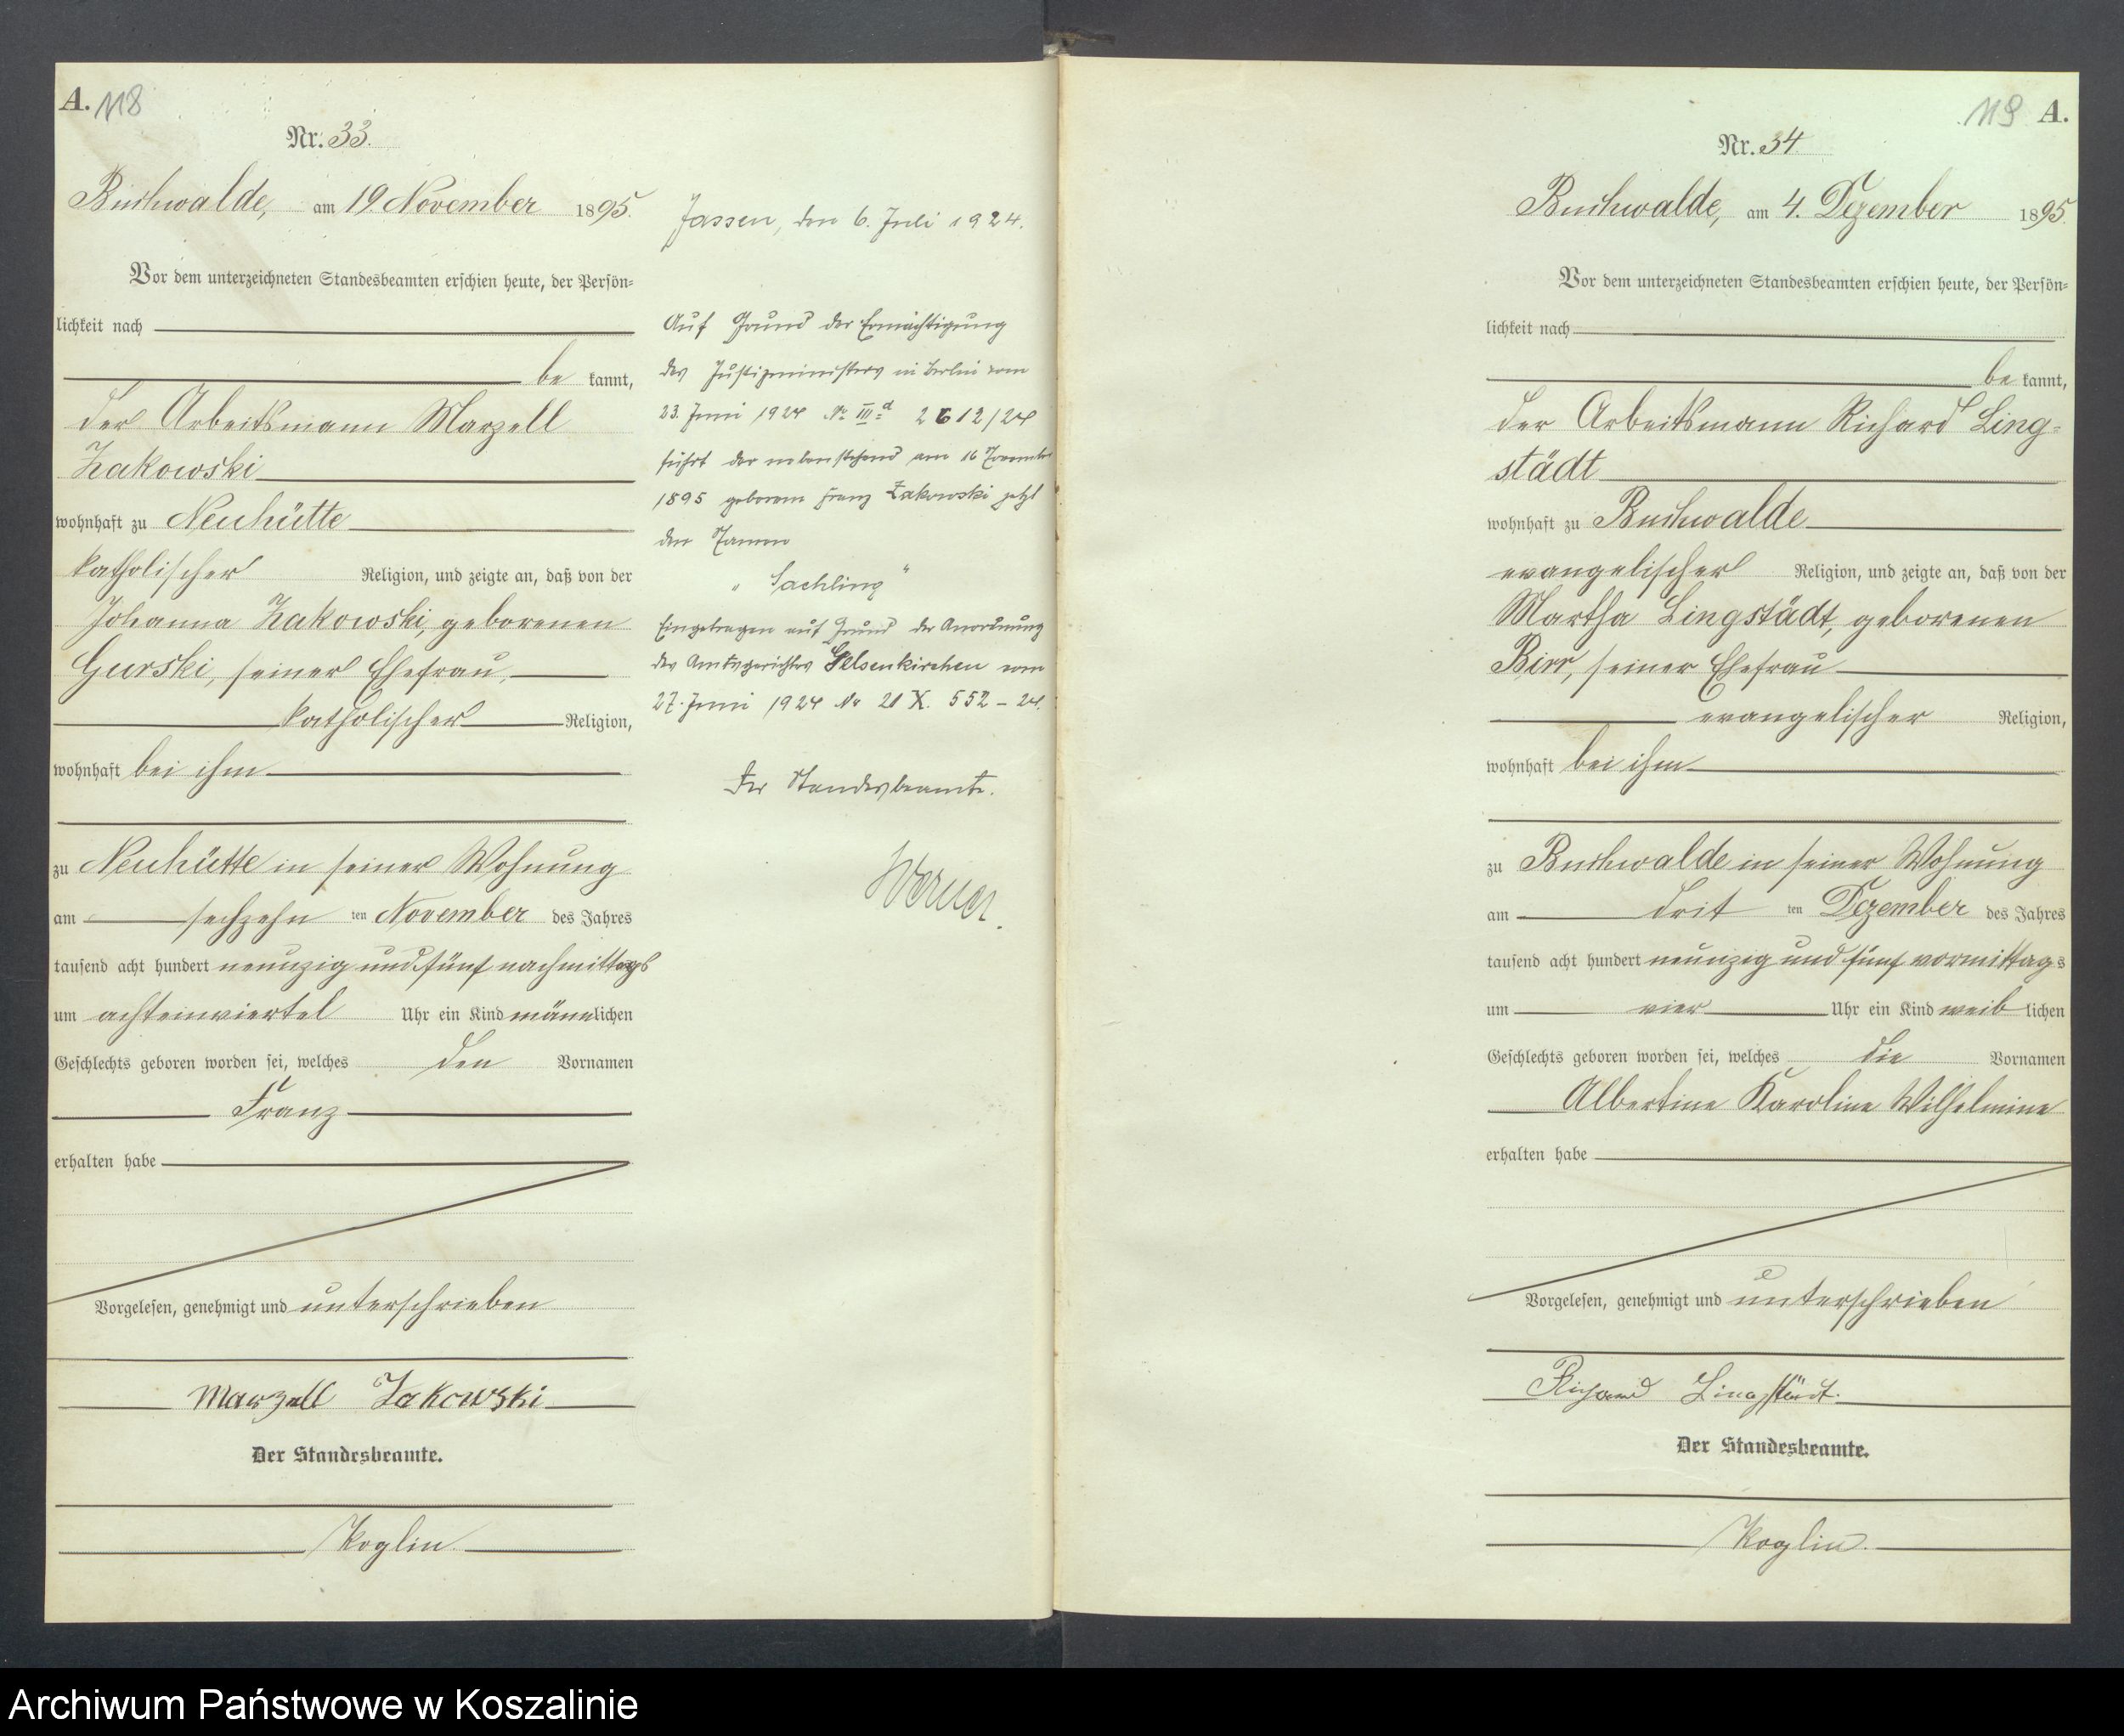 A. 118
Nr. 33.
Buchwalde, am 19. November 1895.
Vor dem unterzeichneten Standesbeamten erschien heute, der Persön-
lichkeit nach
be kannt,
der Arbeitsmann Marzell
Zakowski
wohnhaft zu Neuhütte
katholischer Religion, und zeigte an, daß von der
Johanna Zakowski, geborenen
Gurski, seiner Ehefrau,
katholischer Religion,
wohnhaft bei ihm
zu Neuhütte in seiner Wohnung
am sechzehn ten November des Jahres
tausend acht hundert neunzig und fünf nachmittags
um achteinviertel Uhr ein Kind männlichen
Geschlechts geboren worden sei, welches den Vornamen
Franz
erhalten habe
Vorgelesen, genehmigt und unterschrieben
Marzell Zakowski
Der Standesbeamte.
Koglin.
Jassen, den 6. Juli 1924.
Auf Grund der Ermächtigung
des Justizministers in Berlin vom
23. Juni 1924 No III d 2612/24
führt der nebenstehend am 16 November
1895 geborene Franz Zakowski jetzt
den Namen
„Sachling"
Eingetragen auf Grund der Anordnung
des Amtsgerichtes Gelsenkirchen vom
27. Juni 1924 No 21 X. 552 – 24.
Der Standesbeamte.
Werner.
119 A.
Nr. 34
Buchwalde, am 4. Dezember 1895.
Vor dem unterzeichneten Standesbeamten erschien heute, der Persön-
lichkeit nach
be kannt,
der Arbeitsmann Richard Ling-
städt
wohnhaft zu Buchwalde
evangelischer Religion, und zeigte an, daß von der
Martha Lingstädt, geborenen
Birr, seiner Ehefrau
evangelischer Religion,
wohnhaft bei ihm
zu Buchwalde in seiner Wohnung
am drit ten Dezember des Jahres
tausend acht hundert neunzig und fünf vormittags
um vier Uhr ein Kind weib lichen
Geschlechts geboren worden sei, welches die Vornamen
Albertine Karoline Wilhelmine
erhalten habe
Vorgelesen, genehmigt und unterschrieben
Richard Lingstädt.
Der Standesbeamte.
Koglin.
Archiwum Państwowe w Koszalinie